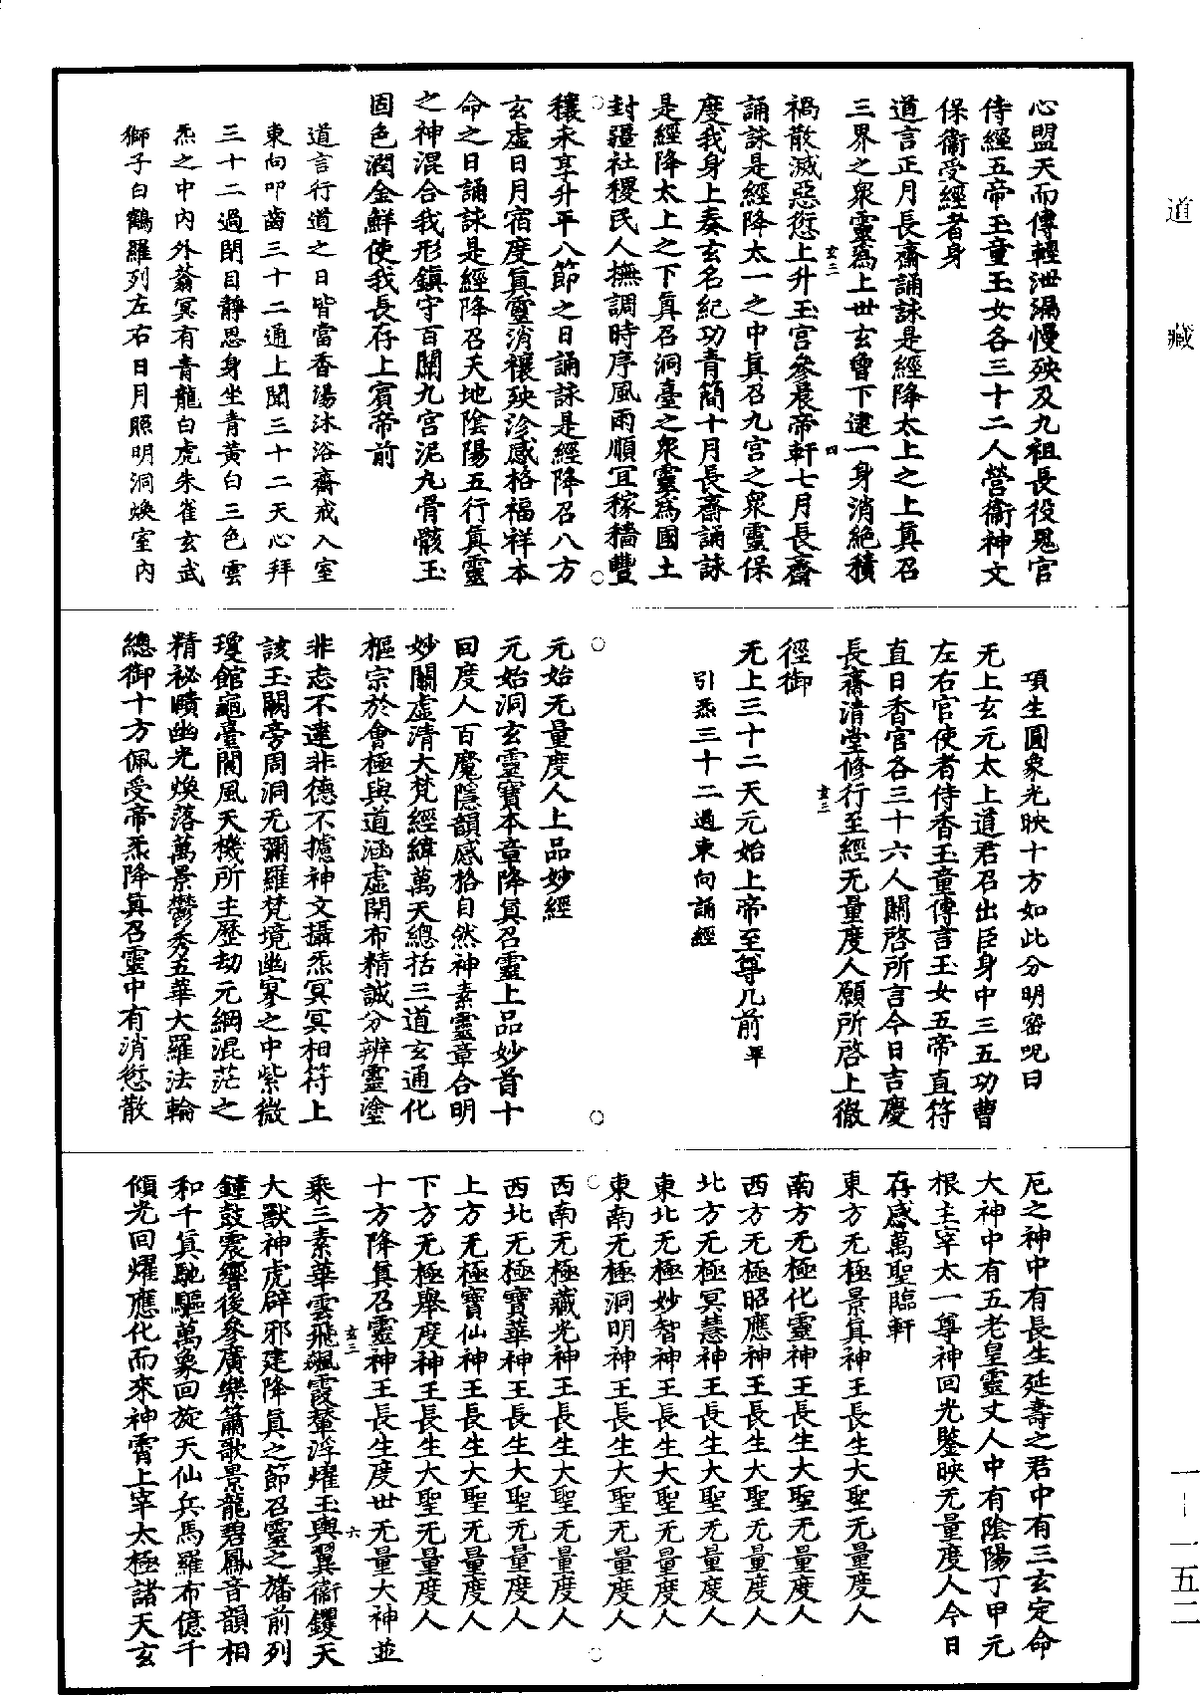 道藏
心盟天而傳輕泄漏慢殃及九祖長役鬼官
侍經五帝玉童玉女各三十二人營衞神文
保衞受經者身
道言正月長齋誦詠是經降太上之上真召
三界之衆靈爲上世玄曾下逮一身消絕積
禍散滅惡愆上升玉宮參晨帝軒七月長齋
誦詠是經降太一之中真召九宮之衆靈保
度我身上奏玄名紀功青簡十月長齋誦詠
是經降太上之下真召洞臺之衆靈爲國土
封疆社稷民人撫調時序風雨順宜稼穡豐
穰未享升平八節之日誦詠是經降召八方
玄虛日月宿度真靈消禳殃沴感格福祥本
命之日誦詠是經降召天地陰陽五行真靈
之神混合我形鎮守百關九宮泥丸骨骸玉
固色潤金鮮使我長存上賓帝前
道言行道之日皆當香湯沐浴齋戒入室
東向叩齒三十二通上聞三十二天心拜
三十二過閉目靜思身坐青黃白三色雲
炁之中內外蓊冥有青龍白虎朱雀玄武
獅子白鶴羅列左右日月照明洞煥室內
項生圓象光映十方如此分明密呪曰
无上玄元太上道君召出臣身中三五功曹
左右官使者侍香玉童傳言玉女五帝直符
直日香官各三十六人關啓所言今日吉慶
長齋清堂修行至經无量度人願所啓上徹
徑御
无上三十二天元始上帝至尊几前畢
引炁三十二過東向誦經
元始无量度人上品妙經
元始洞玄靈寶本章降真召靈上品妙首十
回度人百魔隱韻感格自然神素靈章合明
妙關虛清大梵經緯萬天總括三道玄通化
樞宗於會極與道涵虛開布精誠分辨靈塗
非志不達非德不攄神文攝炁冥冥相符上
該玉闕旁周洞无彌羅梵境幽寥之中紫微
瓊館龜臺閬風天機所主歷劫元綱混茫之
精祕賾幽光煥落萬景鬱秀五華大羅法輪
總御十方佩受帝炁降真召靈中有消愆散
厄之神中有長生延壽之君中有三玄定命
大神中有五老皇靈丈人中有陰陽丁甲元
根主宰太一尊神回光鑒映无量度人今日
存感萬聖臨軒
東方无極景真神王長生大聖无量度人
南方无極化靈神王長生大聖无量度人
西方无極昭應神王長生大聖无量度人
北方无極冥慧神王長生大聖无量度人
東北无極妙智神王長生大聖无量度人
東南无極洞明神王長生大聖无量度人
西南无極藏光神王長生大聖无量度人
西北无極寶華神王長生大聖无量度人
上方无極寶仙神王長生大聖无量度人
下方无極舉度神王長生大聖无量度人
十方降真召靈神王長生度世无量大神並
乘三素華雲飛飆霞輦浮耀玉輿翼衞鑊天
大獸神虎辟邪建降真之節召靈之旛前列
鐘鼓震響後參廣樂簫歌景龍碧鳳音韻相
和千真馳驅萬象回旋天仙兵馬羅布億千
傾光回耀應化而來神霄上宰太極諸天玄
一-一五二